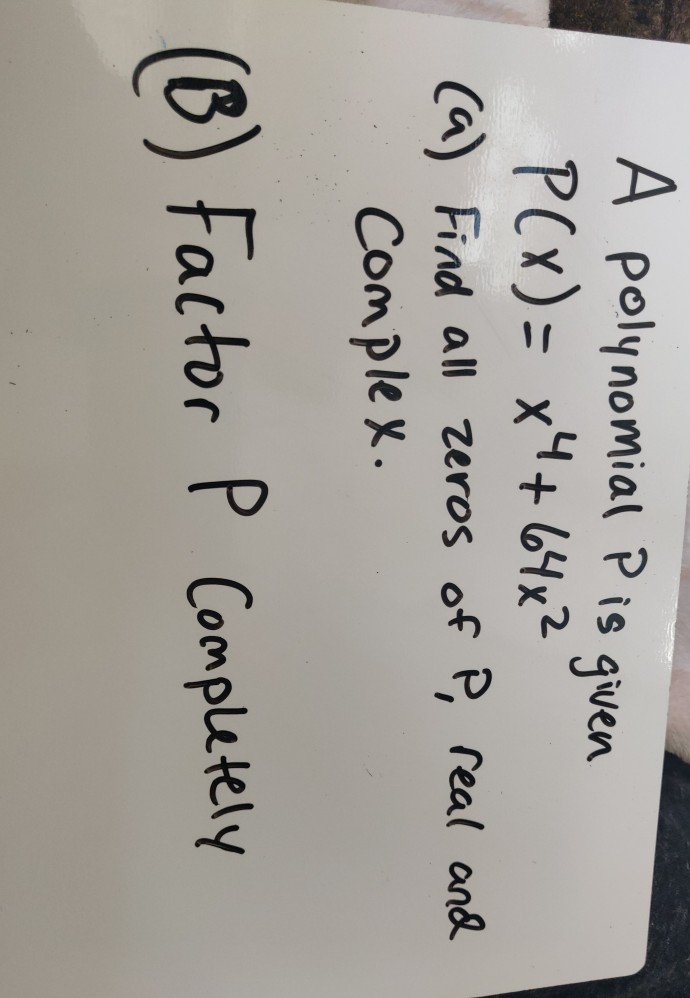 A polynomial P is given
P(x) = x⁴ + 64x²
(a) Find all zeros of P, real and
Complex.
(B) Factor P Completely